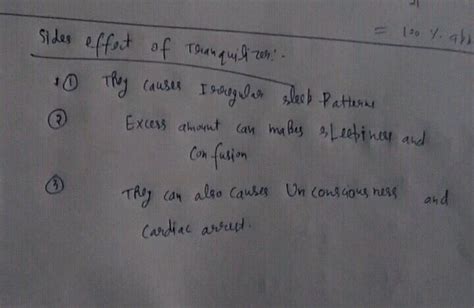 = 100 % abs
Sides effect of Tranquilizers:-
① They causes Irregular sleep Patterns
② Excess amount can makes sleepiness and
confusion
③ They can also causes Unconsciousness and
cardiac arrest.